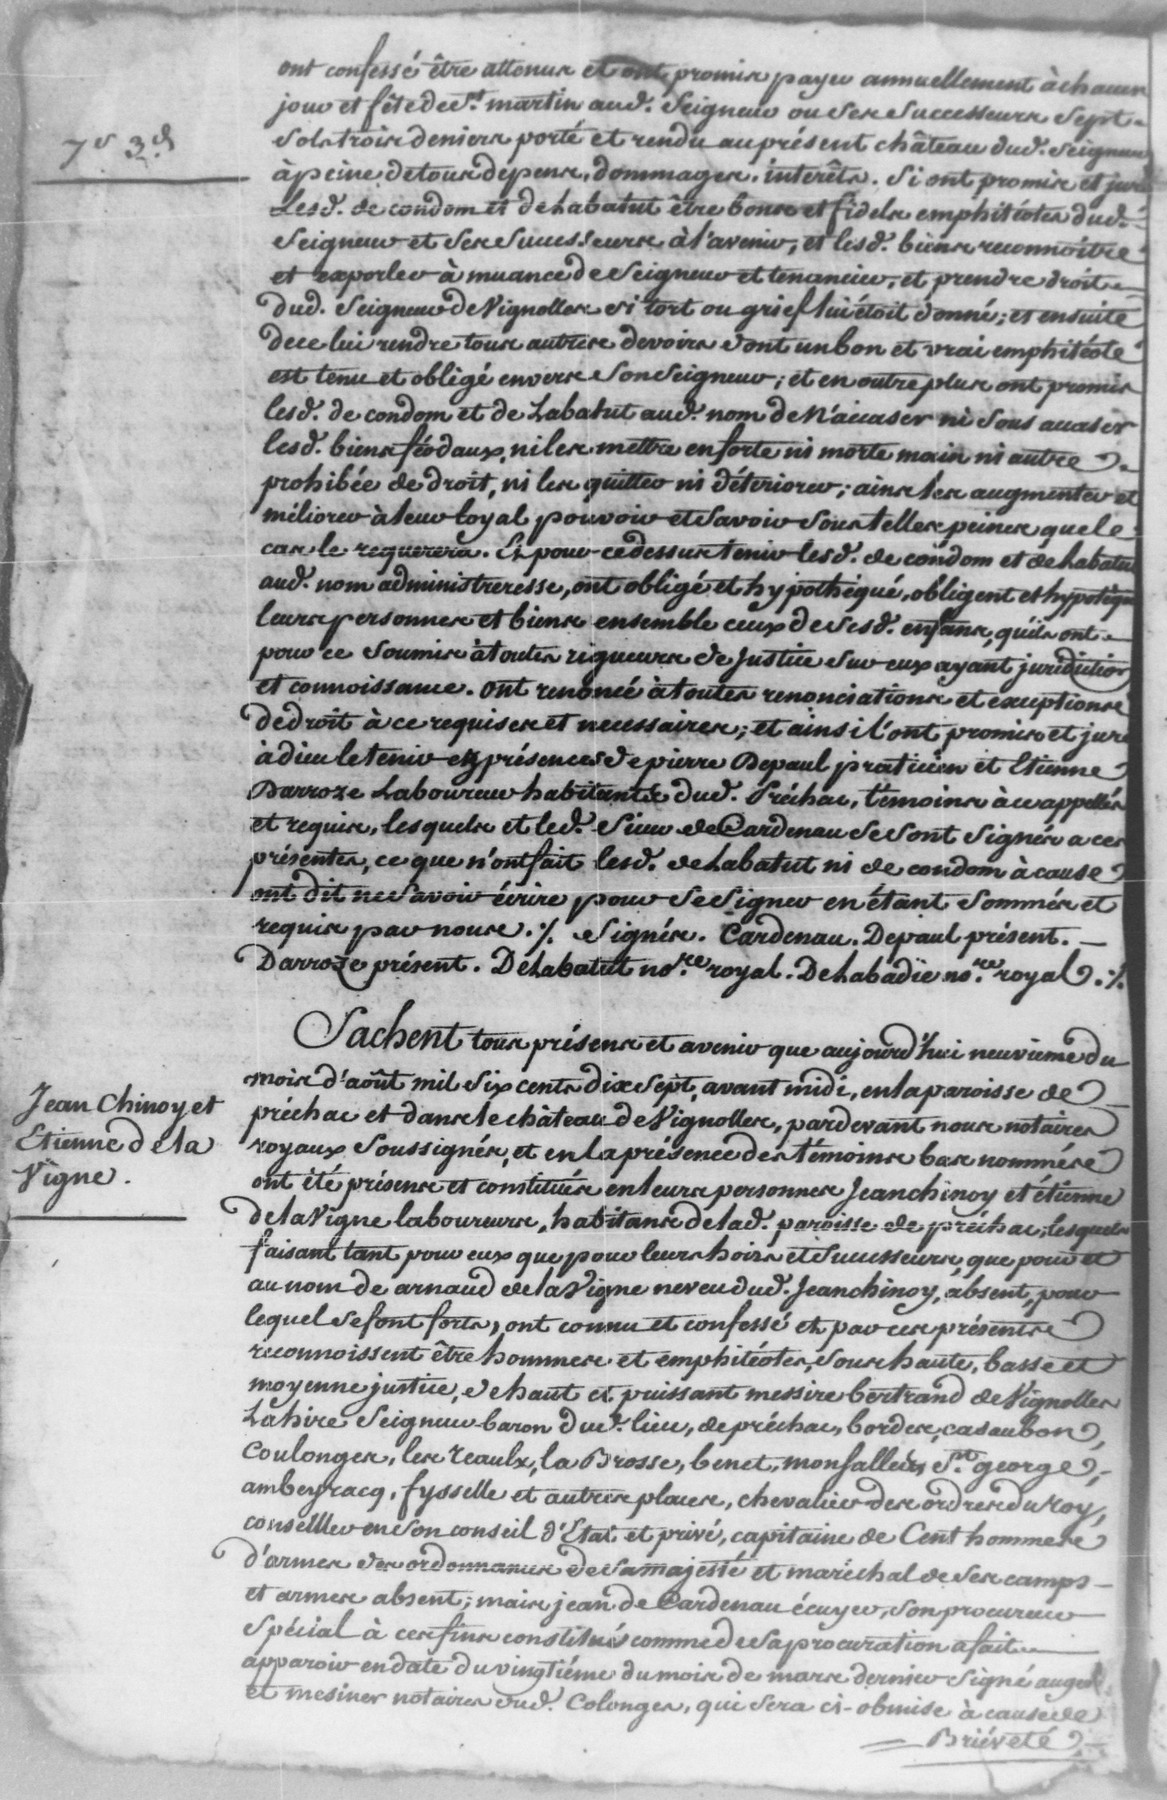 ont confessé être attenus et ont promis payer annuellement à chacun
jour et fête de St. martin aud. Seigneur ou ses Successeurs Sept
7s 3d
Sols trois deniers porté et rendu au présent château dud. Seigneur
à peine de tous depens, dommages, interêts. Si ont promis et juré
Lesd. de condom et de Labatut être bons et fidels emphitéotes dud.
Seigneur et ses Successeurs à l'avenir, et lesd. biens reconnoitre
et exporler à muance de Seigneur et tenancier, et prendre droit
dud. Seigneur de Vignolles si tort ou grief lui étoit donné; et ensuite
de ce lui rendre tous autres devoirs dont un bon et vrai emphitéote
est tenu et obligé envers Son Seigneur; et en outre plus ont promis
lesd. de condom et de Labatut aud. nom de N'accaser ni Sous accaser
lesd. biens féodaux, ni les mettre en forte ni morte main ni autre
prohibée de droit, ni les quitter ni déteriorer; ains les augmenter et
méliorer à leur loyal pouvoir et Savoir Sous telles peines que le
cas le requerera. Et pour ce dessus tenir lesd. de condom et de Labatut
aud. nom administreresse, ont obligé et hypothéqué, obligent et hypotèque
leurs personnes et biens ensemble ceux de Sesd. enfans, qu'ils ont
pour ce Soumis à toutes rigueurs de Justice Sur eux ayant juridiction
et connoissance. ont renoncé à toutes renonciations et exceptions
de droit à ce requises et necessaires; et ainsi l'ont promis et juré
à dieu le tenir ez présences de pierre Depaul praticien et Etienne
Darroze Laboureur habitants dud. Préchac, témoins à ce appellés
et requis, lesquels et led. Sieur de Cardenau Se Sont Signés a ces
présentes, ce que n'ont fait lesd. de Labatut ni de condom à cause
ont dit ne Savoir écrire pour Se Signer en étant Sommés et
requis par nous ./. Signés. Cardenau. Depaul présent.
Darroze présent. De Labatut no.re royal. De Labadïe no.re royal ./.
Jean Chinoy et
Etienne de la
Vigne.
Sachent tous présens et avenir que aujourd'hui neuvième du
mois d'août mil Six cents dix Sept, avant midi, en la paroisse de
préchac et dans le château de Vignolles, pardevant nous notaires
royaux Soussignés, et en la présence des témoins bas nommés
ont été présens et constitués en leurs personnes Jean chinoy et étienne
de la Vigne laboureurs, habitans de lad. paroisse de préchac, lesquels
faisant tant pour eux que pour leurs hoirs et Successeurs, que pour et
au nom de arnaud de la Vigne neveu dud. Jean chinoy, absent, pour
lequel Se font forts, ont connu et confessé et par ces présentes
reconnoissent être hommes et emphitéotes, Sous haute, basse et
moyenne justice, de haut et puissant messire bertrand de Vignolles
Lahire Seigneur baron dud. lieu, de préchac, bordes, casaubon,
Coulonges, les reaulx, la Brosse, benet, monfalleix, St. george,
ambeyracq, fysselle et autres places, chevalier des ordres du roy,
conseiller en Son conseil d'Etat et privé, capitaine de Cent hommes
d'armes des ordonnances de Sa majesté et maréchal de Ses camps
et armes absent; mais jean de Cardenau écuyer, Son procureur
Spécial à ces fins constitué comme de Sa procuration a fait
apparoir en date du vingtième du mois de mars dernier Signé
et mesiner notaires dud. Colonges, qui Sera ci-obmise à cause de
Briéveté